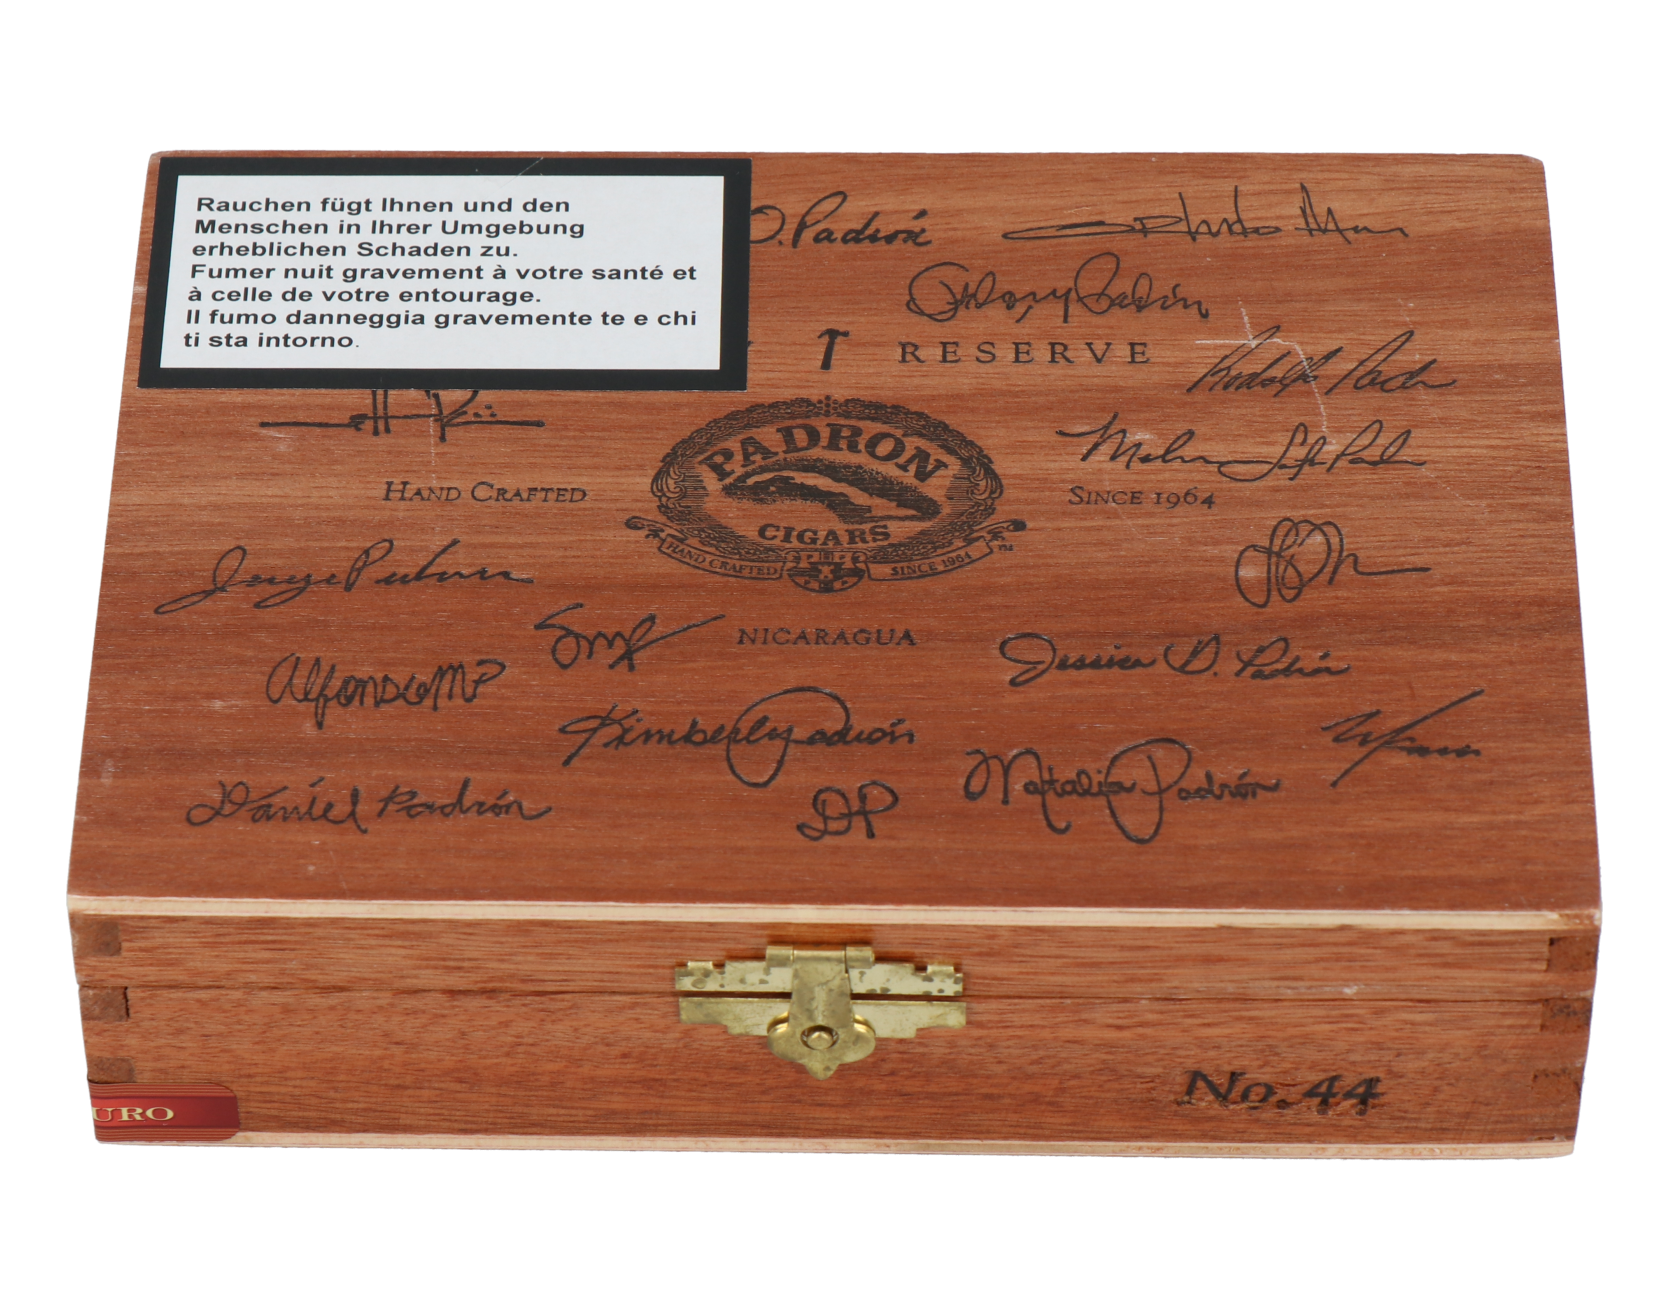 Rauchen fügt Ihnen und den
Menschen in Ihrer Umgebung
erheblichen Schaden zu.
Fumer nuit gravement à votre santé et
à celle de votre entourage.
Il fumo danneggia gravemente te e chi
ti sta intorno.
O. Padrón
RESERVE
Rodolfo Padr
PADRÓN
CIGARS
HAND CRAFTED
SINCE 1964
HAND CRAFTED
SINCE 1964
Jorge Padrón
SMP
NICARAGUA
Jessica D. Padrón
Alfonso MP
Kimberly Padrón
Natalia Padrón
Daniel Padrón
DP
No. 44
URO